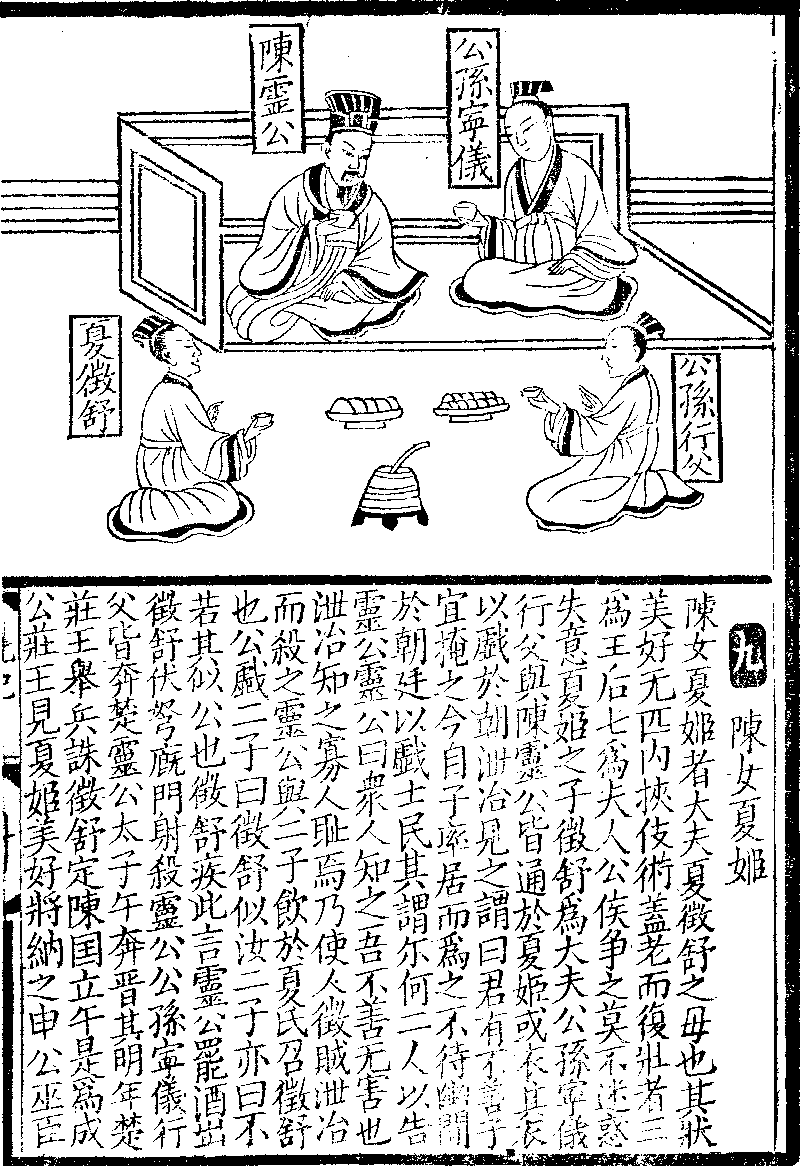 陳靈公
公孫寧儀
夏徵舒
公孫行父
九 陳女夏姬
陳女夏姬者大夫夏徵舒之母也其狀
美好无匹內挾伎術蓋老而復壯者三
為王后七為夫人公侯争之莫不迷惑
失意夏姬之子徵舒為大夫公孫寧儀
行父與陳靈公皆通於夏姬或衣其衣
以戲於朝泄冶見之謂曰君有不善子
宜掩之今自子率居而為之不待幽閒
於朝廷以戲士民其謂尔何二人以告
靈公靈公曰衆人知之吾不善无害也
泄冶知之寡人耻焉乃使人徵賊泄冶
而殺之靈公與二子飲於夏氏召徵舒
也公戲二子曰徵舒似汝二子亦曰不
若其似公也徵舒疾此言靈公罷酒出
徵舒伏弩廐門射殺靈公公孫寧儀行
父皆奔楚靈公太子午奔晋其明年楚
莊王舉兵誅徵舒定陳国立午是為成
公莊王見夏姬美好將納之申公巫臣